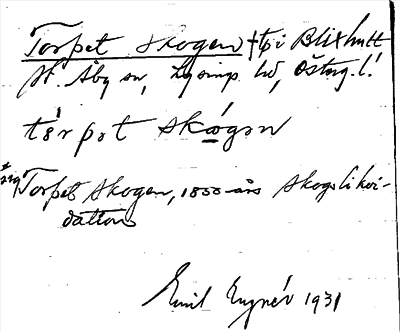 Torpet Skogen, tp i Blixhult
St. Åby sn, Lysings hd, Östergl.
tårpət skógən
Torpet Skogen, 1800-års skogslikvi-
dation
Emil 1931